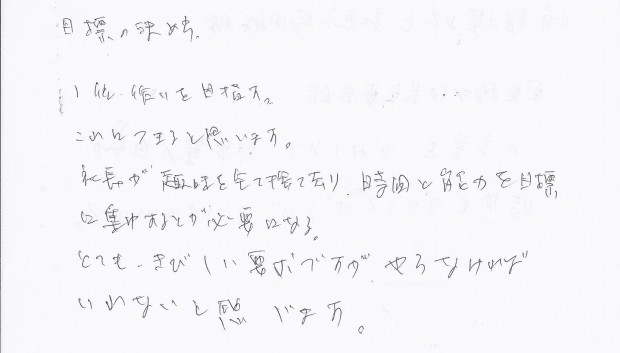 目標の決め方
1位 作りを目指す。
これはできると思います。
社長が趣味を全て捨ており、時間と能力を目標
に集中することが必要になる。
とても、きびしい要求ですが、やらなければ
いけないと思います。